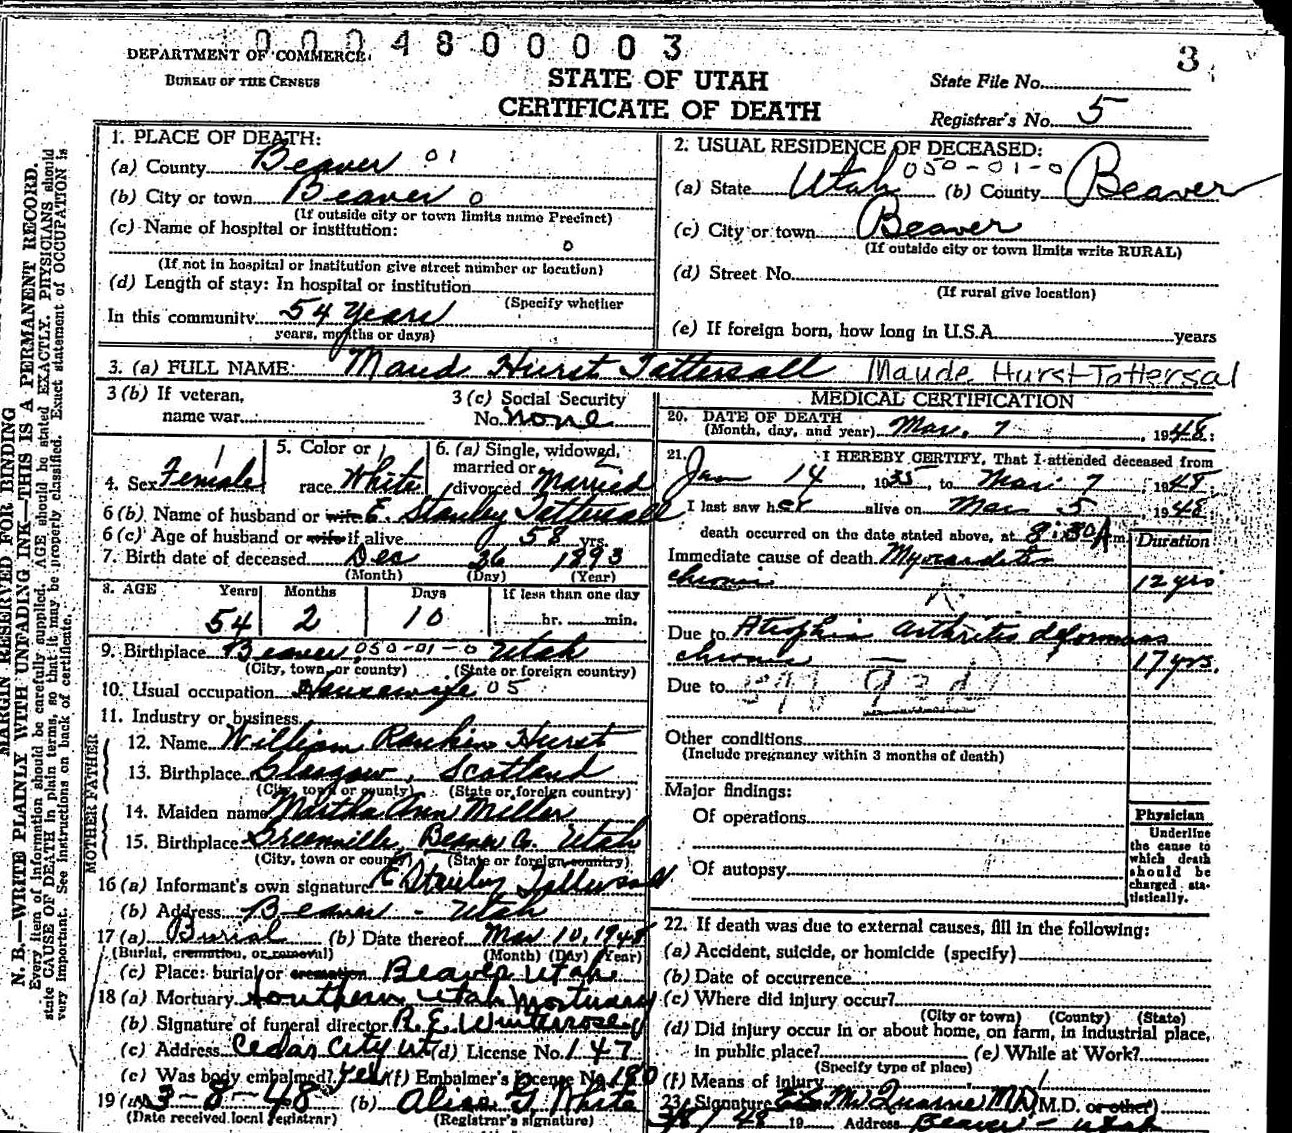 0 0 0 4 8 0 0 0 0 3
3
DEPARTMENT OF COMMERCE
BUREAU OF THE CENSUS
STATE OF UTAH
CERTIFICATE OF DEATH
State File No.
Registrar's No. 5
MARGIN RESERVED FOR BINDING
N. B.—WRITE PLAINLY WITH UNFADING INK—THIS IS A PERMANENT RECORD.
Every item of information should be carefully supplied. AGE should be stated EXACTLY. PHYSICIANS should
state CAUSE OF DEATH in plain terms, so that it may be properly classified. Exact statement of OCCUPATION is
very important. See instructions on back of certificate.
1. PLACE OF DEATH:
(a) County Beaver 01
(b) City or town Beaver 0
(If outside city or town limits name Precinct)
(c) Name of hospital or institution:
0
(If not in hospital or institution give street number or location)
(d) Length of stay: In hospital or institution
(Specify whether
In this community 54 Years
years, months or days)
2. USUAL RESIDENCE OF DECEASED:
050-01-0
(a) State Utah (b) County Beaver
(c) City or town Beaver
(If outside city or town limits write RURAL)
(d) Street No.
(If rural give location)
(e) If foreign born, how long in U.S.A. years
3. (a) FULL NAME: Maud Hurst Tattersall Maude Hurst Tattersal
3 (b) If veteran,
name war
3 (c) Social Security
No. none
4. Sex Female
5. Color or
race White
6. (a) Single, widowed,
married or
divorced Married
6 (b) Name of husband or wife E. Stanley Tattersall
6 (c) Age of husband or wife if alive 58 yrs.
7. Birth date of deceased Dec 26 1893
(Month) (Day) (Year)
8. AGE Years Months Days If less than one day
54 2 10 hr. min.
9. Birthplace Beaver 050-01-0 Utah
(City, town, or county) (State or foreign country)
10. Usual occupation Housewife 05
11. Industry or business
FATHER
12. Name William Rankin Hurst
13. Birthplace Glasgow, Scotland
(City, town or county) (State or foreign country)
MOTHER
14. Maiden name Martha Ann Miller
15. Birthplace Greenville, Beaver Co. Utah
(City, town or county) (State or foreign country)
16 (a) Informant's own signature E Stanley Tattersall
(b) Address Beaver - Utah
17 (a) Burial (b) Date thereof Mar 10, 1948
(Burial, cremation, or removal) (Month) (Day) (Year)
(c) Place: burial or cremation Beaver Utah
18 (a) Mortuary Southern Utah Mortuary
(b) Signature of funeral director R. E. Winterrose
(c) Address Cedar City Ut (d) License No. 147
(e) Was body embalmed? Yes (f) Embalmer's License No. 180
19 (a) 3-8-48 (b) Alice G. White
(Date received local registrar) (Registrar's signature)
MEDICAL CERTIFICATION
20. DATE OF DEATH
(Month, day, and year) Mar. 7, 1948
21. I HEREBY CERTIFY, That I attended deceased from
Jan 14, 1935, to Mar. 7, 1948
I last saw her alive on Mar 5, 1948
death occurred on the date stated above, at 8:30 A m.
Duration
Immediate cause of death Myocarditis
chronic 12 yrs
Due to Atrophic arthritis deformans
chronic 17 yrs.
Due to
Other conditions
(Include pregnancy within 3 months of death)
Major findings:
Of operations
Of autopsy
Physician
Underline
the cause to
which death
should be
charged sta-
tistically.
22. If death was due to external causes, fill in the following:
(a) Accident, suicide, or homicide (specify)
(b) Date of occurrence
(c) Where did injury occur?
(City or town) (County) (State)
(d) Did injury occur in or about home, on farm, in industrial place,
in public place? (e) While at Work?
(Specify type of place)
(f) Means of injury
23. Signature McQuarrie MD M.D. or other)
3/8/48 19 Address Beaver - Utah